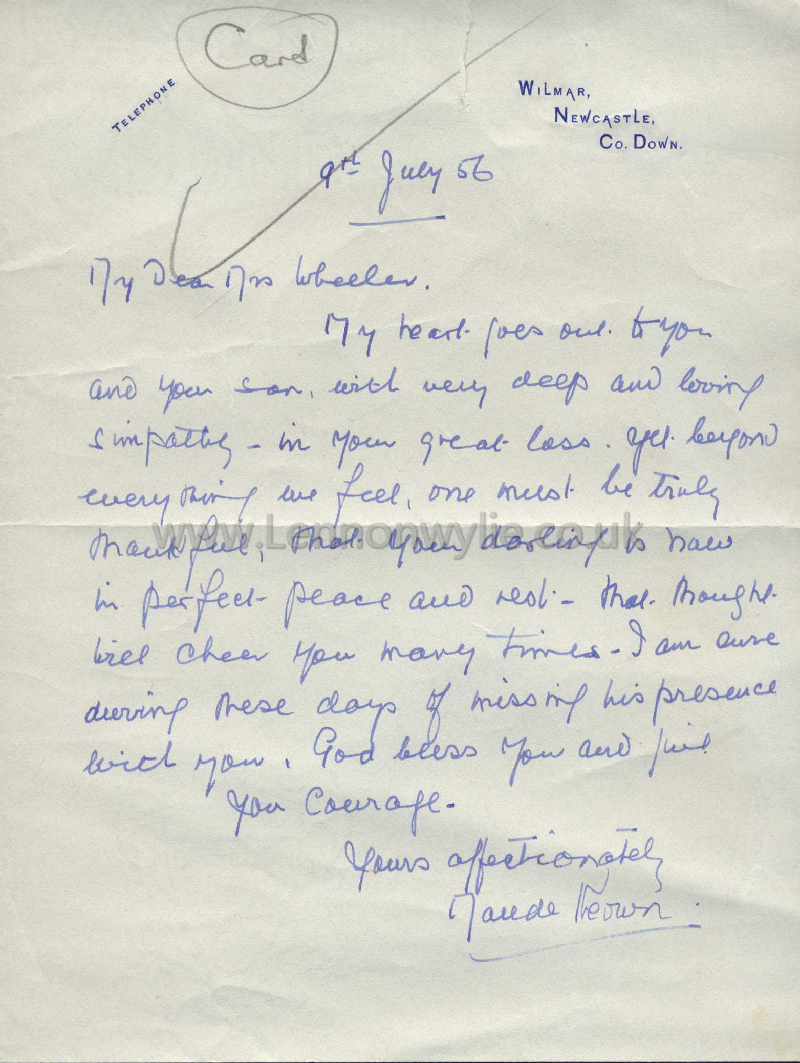 Card
TELEPHONE
WILMAR,
NEWCASTLE,
CO. DOWN.
9th July 56
My Dear Mrs Wheeler.
My heart goes out to you
and your son, with very deep and loving
simpathy - in your great loss. Yet beyond
everything we feel, one must be truly
thankful, that your darling is now
in perfect peace and rest - that thought
will cheer you many times - I am sure
during these days of missing his presence
with you. God bless you and give
you courage -
Yours affectionately
Maude Keown.
www.Lennonwylie.co.uk